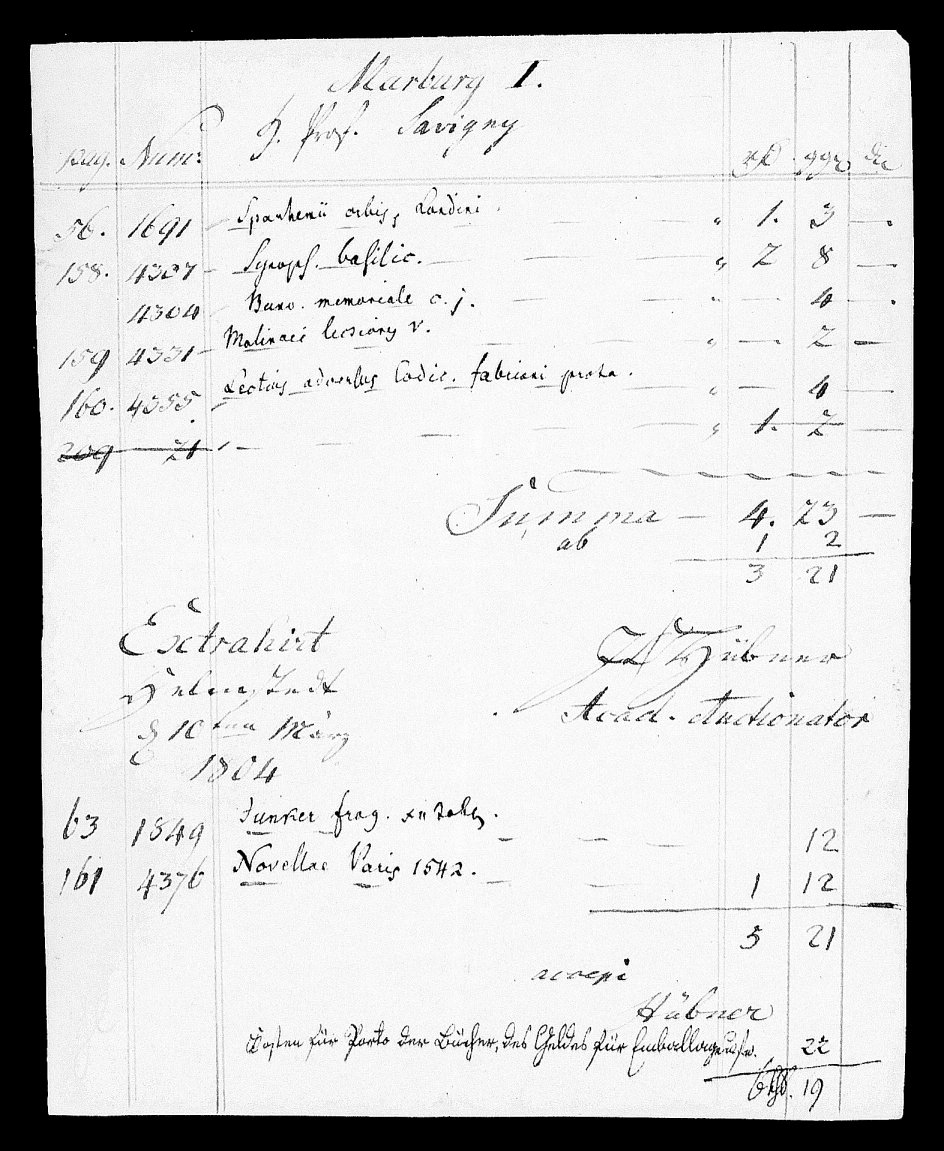 Marburg I.
H. Prof. Savigny
pag. Num: rth ggr
56. 1691 Spanhemii orbis, Londini. — — — " 1. 3 —.
158. 4307 — Synops. basilic. — — — " 2 8 —
4304 — memoriale c. j. — — — " — 4 —.
159 4331 — Molinaei lections v. — — — " — 2 —
160. 4355 Lectius adversus Codic. fabriani — — " — 4 —
209 21 — — — — " 1. 2 —
Summa — 4. 23 —
ab 1 2
3 21
Extrahirt Hübner
Helmstedt Acad. Auctionator
d 10ten März
1804
63 1849 Junker frag. — — 12
161 4376 Novellae Paris 1542. — — — 1 12
5 21
accepi
Hübner
Kosten für Porto der Bücher, des Geldes für Emballage usw. 22
6 rth. 19